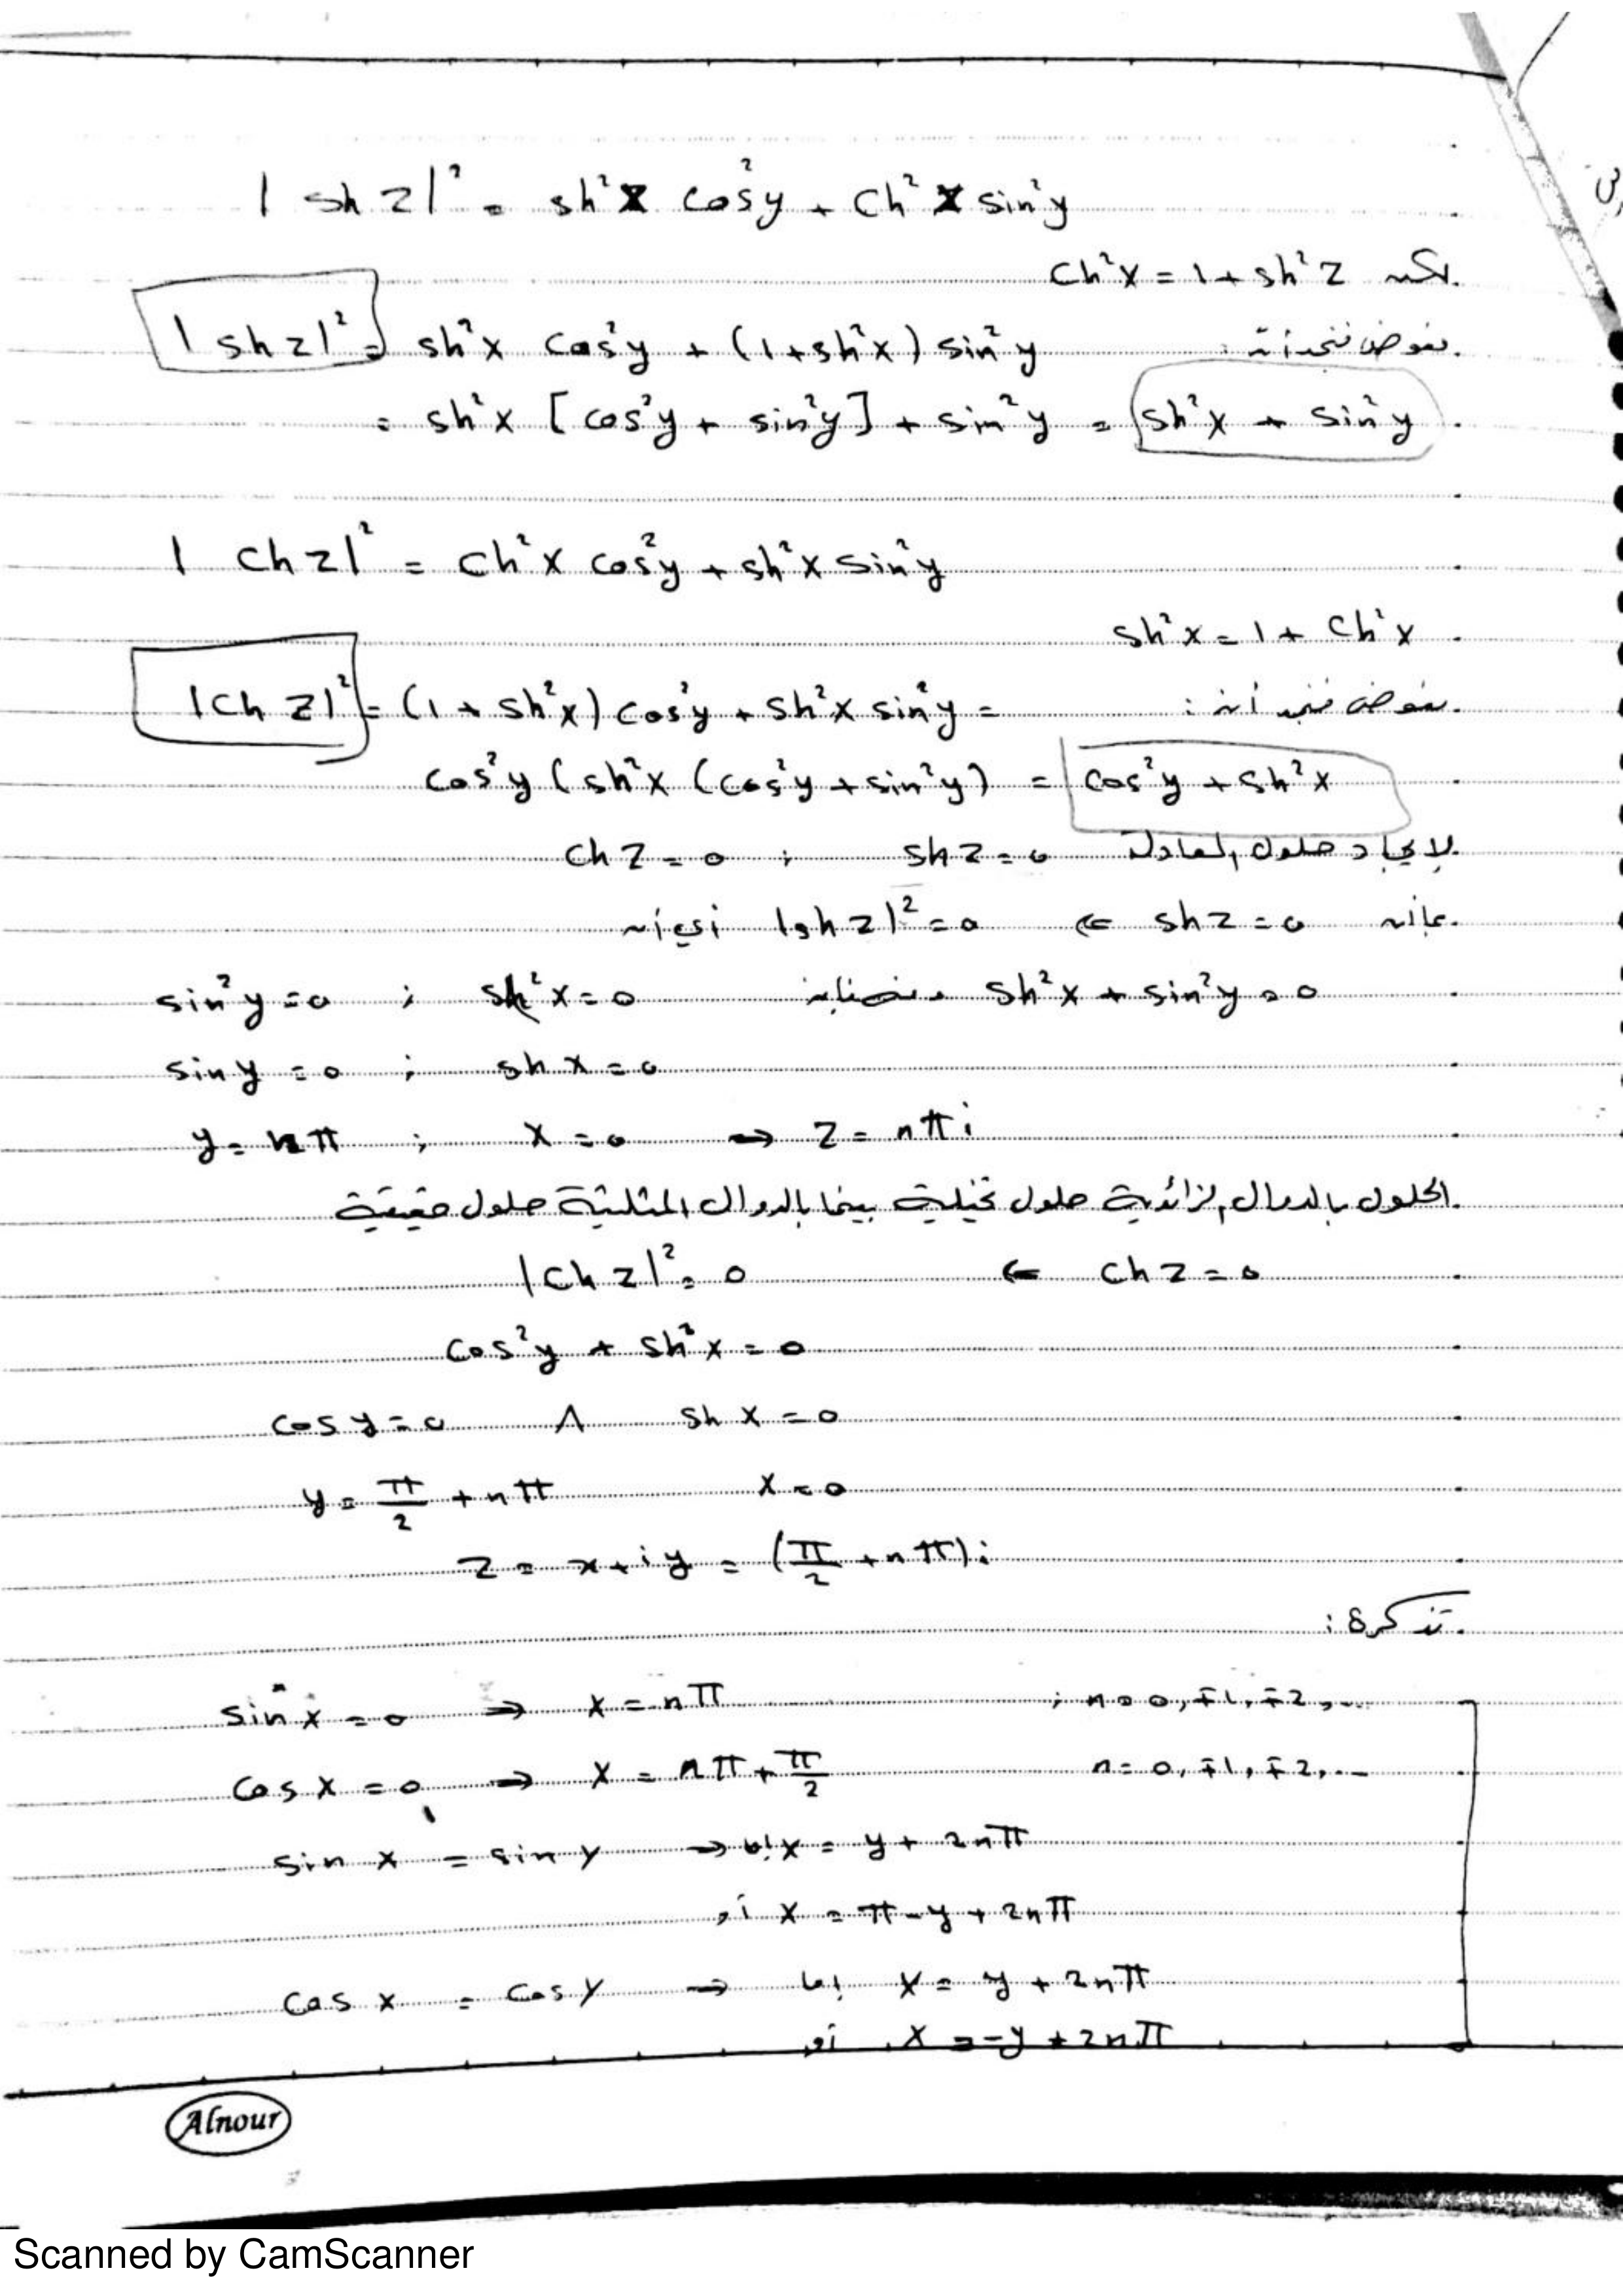 |sh z|² = sh²x cos²y + ch²x sin²y
لكن ch²x = 1 + sh²z
نعوض فنجد أنه :
|sh z|² = sh²x cos²y + (1 + sh²x) sin²y
= sh²x [cos²y + sin²y] + sin²y = sh²x + sin²y
|ch z|² = ch²x cos²y + sh²x sin²y
sh²x = 1 + ch²x
نعوض فنجد أنه :
|ch z|² = (1 + sh²x) cos²y + sh²x sin²y =
cos²y (sh²x (cos²y + sin²y) = cos²y + sh²x
لإيجاد حلول المعادلة sh z = 0 ; ch z = 0
بما أن sh z = 0 ⇐ |sh z|² = 0 أي أن
sh²x + sin²y = 0 ومنه sh²x = 0 ; sin²y = 0
sin y = 0 ; sh x = 0
y = nπ ; x = 0 ⇒ z = nπi
الحلول بالدوال الزائدية حلول تخيلية بينما بالدوال المثلثية حلول حقيقية
ch z = 0 ⇐ |ch z|² = 0
cos²y + sh²x = 0
cos y = 0 ∧ sh x = 0
y = π/2 + nπ x = 0
z = x + iy = (π/2 + nπ) i
تذكرة :
sin x = 0 ⇒ x = nπ ; n = 0, ∓1, ∓2, ...
cos x = 0 ⇒ x = nπ + π/2 n = 0, ∓1, ∓2, ...
sin x = sin y ⇒ إما x = y + 2nπ
أو x = π - y + 2nπ
cos x = cos y ⇒ إما x = y + 2nπ
أو x = -y + 2nπ
Alnour
Scanned by CamScanner